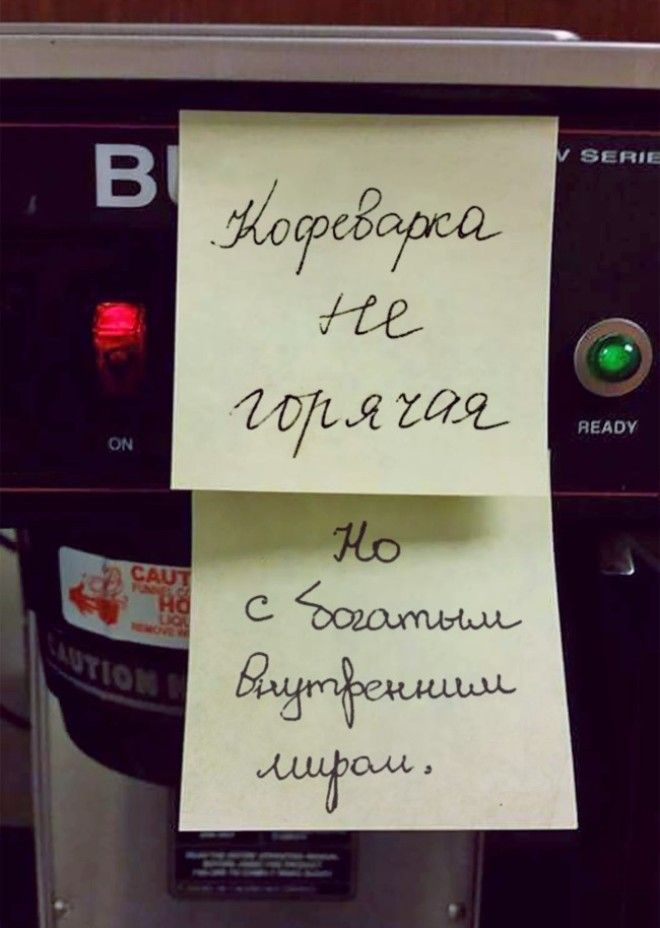 V SERIE
Кофеварка
не
горячая
ON
READY
Но
с богатым
внутренним
миром.
CAUT
HO
LIQU
REMOVE
CAUTION